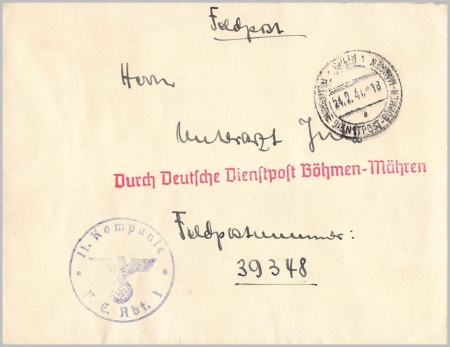 Feldpost
Herrn
24.2.41.-18
DIENSTPOST-BÖHMEN-MÄHREN
Unterarzt
Durch Deutsche Dienstpost Böhmen-Mähren
11. Kompanie
E. Abt. 1
Feldpostnummer:
39348